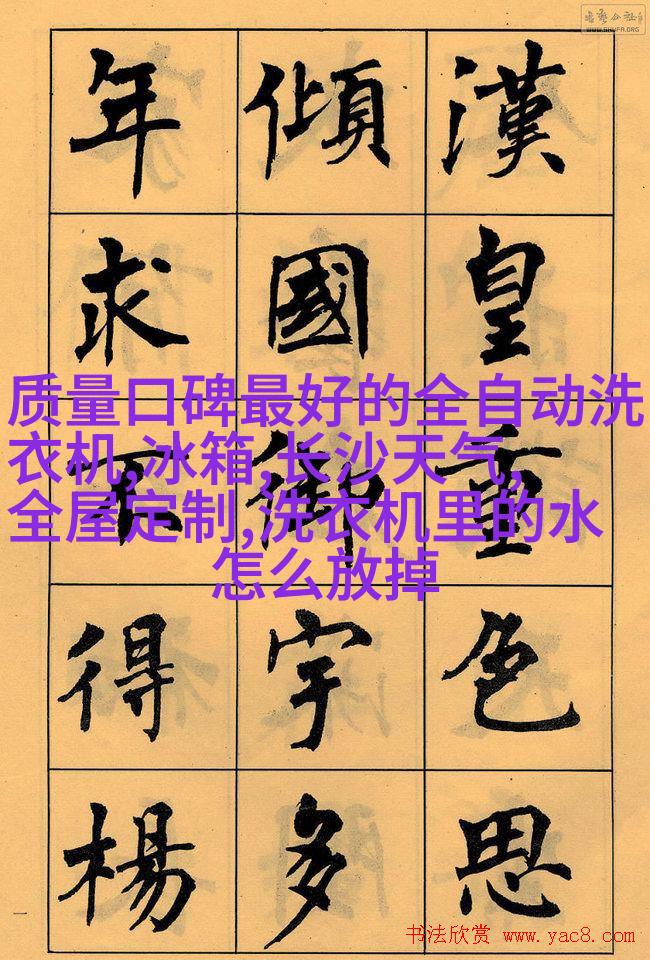 漢皇重色思
傾國御宇多
年求不得楊
质量口碑最好的全自动洗
衣机,冰箱,长沙天气,
全屋定制,洗衣机里的水
怎么放掉
一
书法欣赏 www.yac8.com
WWW.SHUFA.ORG